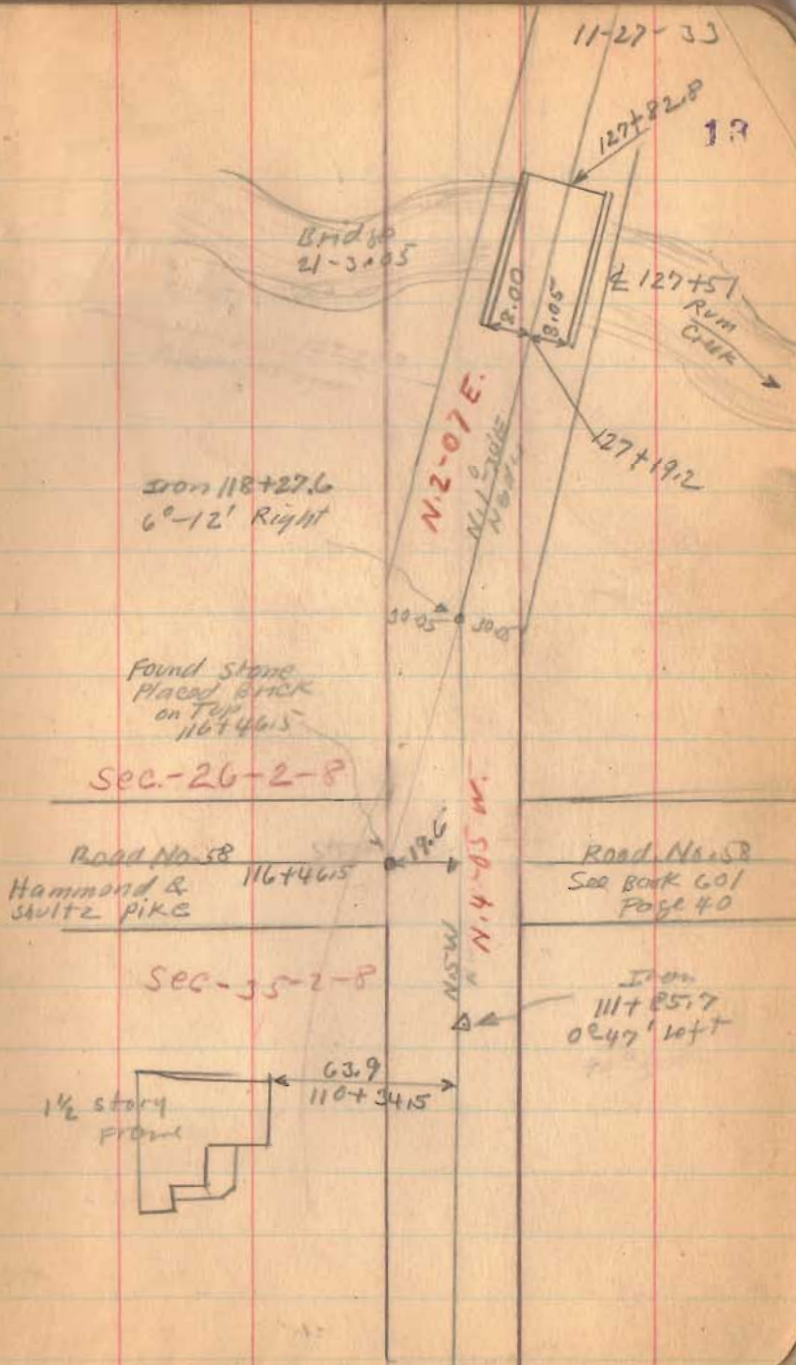 11-27-33
13
127+82.8
Bridge
21-3.05
℄ 127+51
Rum
Creek
8.00
8.05
127+19.2
N.2-07 E.
Iron 118+27.6
6°-12' Right
30.05
Found Stone
Placed Brick
on Top
116+46.5
Sec.-26-2-8
19.6
Road No. 58
116+46.5
Hammond &
Shultz Pike
Road No. 58
See Book 601
Page 40
N.4-05 W.
N.5W
Sec-35-2-8
Iron
111+85.7
0°47' Left
63.9
110+34.5
1½ story
Frame